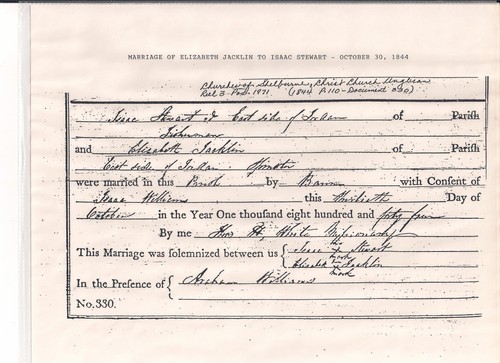 MARRIAGE OF ELIZABETH JACKLIN TO ISAAC STEWART - OCTOBER 30, 1844
Churches of Shelburne, Christ Church Anglican
Reel 3 - Post-1871 (1844 A110-Document 330)
Isaac Stewart of East side of Jordan of Parish
Fisherman
and Elizabeth Jacklin of Parish
East side of Jordan Spinster
were married in this by Banns with Consent of
Isaac Williams this thirtieth Day of
October in the Year One thousand eight hundred and forty four
By me Thos H. White Missionary
This Marriage was solemnized between us { Isaac his x mark Stewart
Elizabeth her x mark Jacklin
In the Presence of { Williams
No.330.